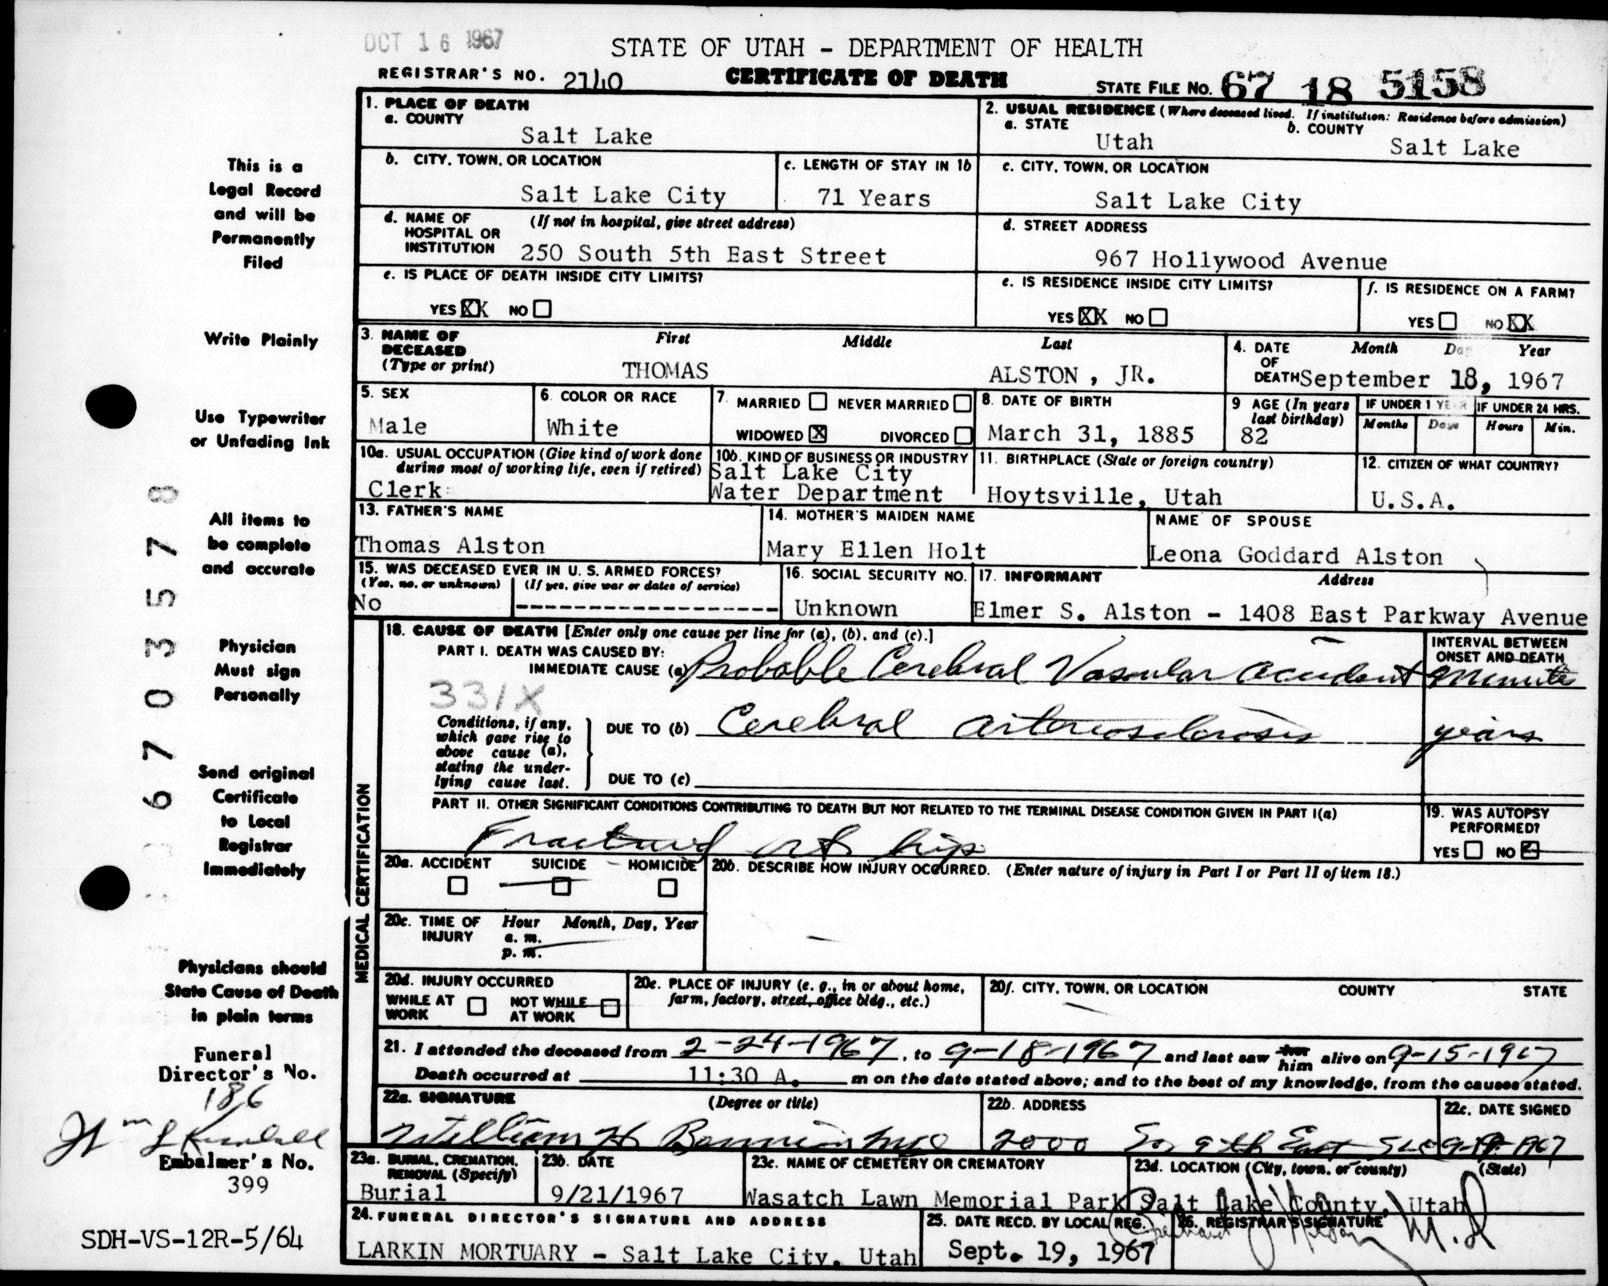 OCT 16 1967
STATE OF UTAH - DEPARTMENT OF HEALTH
REGISTRAR'S NO. 2140 CERTIFICATE OF DEATH STATE FILE NO. 67 18 5158
This is a
Legal Record
and will be
Permanently
Filed
Write Plainly
Use Typewriter
or Unfading Ink
All items to
be complete
and accurate
Physician
Must sign
Personally
Send original
Certificate
to Local
Registrar
Immediately
Physicians should
State Cause of Death
in plain terms
Funeral
Director's No.
186
Wm L Kimball
Embalmer's No.
399
SDH-VS-12R-5/64
67035778
1. PLACE OF DEATH
a. COUNTY
Salt Lake
2. USUAL RESIDENCE (Where deceased lived. If institution: Residence before admission)
a. STATE b. COUNTY
Utah Salt Lake
b. CITY, TOWN, OR LOCATION c. LENGTH OF STAY IN 1b c. CITY, TOWN, OR LOCATION
Salt Lake City 71 Years Salt Lake City
d. NAME OF (If not in hospital, give street address) d. STREET ADDRESS
HOSPITAL OR
INSTITUTION 250 South 5th East Street 967 Hollywood Avenue
e. IS PLACE OF DEATH INSIDE CITY LIMITS? e. IS RESIDENCE INSIDE CITY LIMITS? f. IS RESIDENCE ON A FARM?
YES XX NO YES XX NO YES NO XX
3. NAME OF First Middle Last 4. DATE Month Day Year
DECEASED OF
(Type or print) THOMAS ALSTON, JR. DEATH September 18, 1967
5. SEX 6. COLOR OR RACE 7. MARRIED NEVER MARRIED 8. DATE OF BIRTH 9. AGE (In years last birthday) IF UNDER 1 YEAR IF UNDER 24 HRS.
Months Days Hours Min.
Male White WIDOWED X DIVORCED March 31, 1885 82
10a. USUAL OCCUPATION (Give kind of work done 10b. KIND OF BUSINESS OR INDUSTRY 11. BIRTHPLACE (State or foreign country) 12. CITIZEN OF WHAT COUNTRY?
during most of working life, even if retired) Salt Lake City
Clerk Water Department Hoytsville, Utah U.S.A.
13. FATHER'S NAME 14. MOTHER'S MAIDEN NAME NAME OF SPOUSE
Thomas Alston Mary Ellen Holt Leona Goddard Alston
15. WAS DECEASED EVER IN U. S. ARMED FORCES? 16. SOCIAL SECURITY NO. 17. INFORMANT Address
(Yes, no, or unknown) (If yes, give war or dates of service)
No Unknown Elmer S. Alston - 1408 East Parkway Avenue
MEDICAL CERTIFICATION
18. CAUSE OF DEATH [Enter only one cause per line for (a), (b), and (c).] INTERVAL BETWEEN
PART I. DEATH WAS CAUSED BY: ONSET AND DEATH
IMMEDIATE CAUSE (a) Probable Cerebral Vascular accident minutes
331X
Conditions, if any,
which gave rise to
above cause (a),
stating the under-
lying cause last.
DUE TO (b) Cerebral arteriosclerosis years
DUE TO (c)
PART II. OTHER SIGNIFICANT CONDITIONS CONTRIBUTING TO DEATH BUT NOT RELATED TO THE TERMINAL DISEASE CONDITION GIVEN IN PART I(a) 19. WAS AUTOPSY
PERFORMED?
Fractured rt hip YES NO
20a. ACCIDENT SUICIDE HOMICIDE 20b. DESCRIBE HOW INJURY OCCURRED. (Enter nature of injury in Part I or Part II of item 18.)
20c. TIME OF Hour Month, Day, Year
INJURY a. m.
p. m.
20d. INJURY OCCURRED 20e. PLACE OF INJURY (e. g., in or about home, 20f. CITY, TOWN, OR LOCATION COUNTY STATE
WHILE AT NOT WHILE farm, factory, street, office bldg., etc.)
WORK AT WORK
21. I attended the deceased from 2-24-1967, to 9-18-1967 and last saw her him alive on 9-15-1967
Death occurred at 11:30 A. m on the date stated above; and to the best of my knowledge, from the causes stated.
22a. SIGNATURE (Degree or title) 22b. ADDRESS 22c. DATE SIGNED
William H Bennion MD 2000 So 9th East SLC 9-19-1967
23a. BURIAL, CREMATION, 23b. DATE 23c. NAME OF CEMETERY OR CREMATORY 23d. LOCATION (City, town, or county) (State)
REMOVAL (Specify)
Burial 9/21/1967 Wasatch Lawn Memorial Park Salt Lake County, Utah
24. FUNERAL DIRECTOR'S SIGNATURE AND ADDRESS 25. DATE RECD. BY LOCAL REG. 26. REGISTRAR'S SIGNATURE
LARKIN MORTUARY - Salt Lake City, Utah Sept. 19, 1967 M.D.